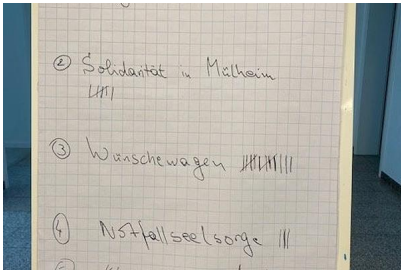 ② Solidarität in Mülheim
③ Wünschewagen
④ Notfallseelsorge |||